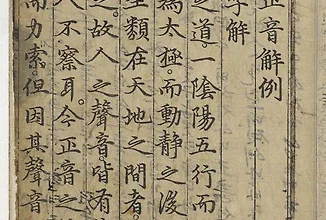 正音解例
字解
之道。一陰陽五行而
爲太極。而動靜之後
生類在天地之間者。
之。故人之聲音。皆有
人不察耳。今正音之
而力索。但因其聲音